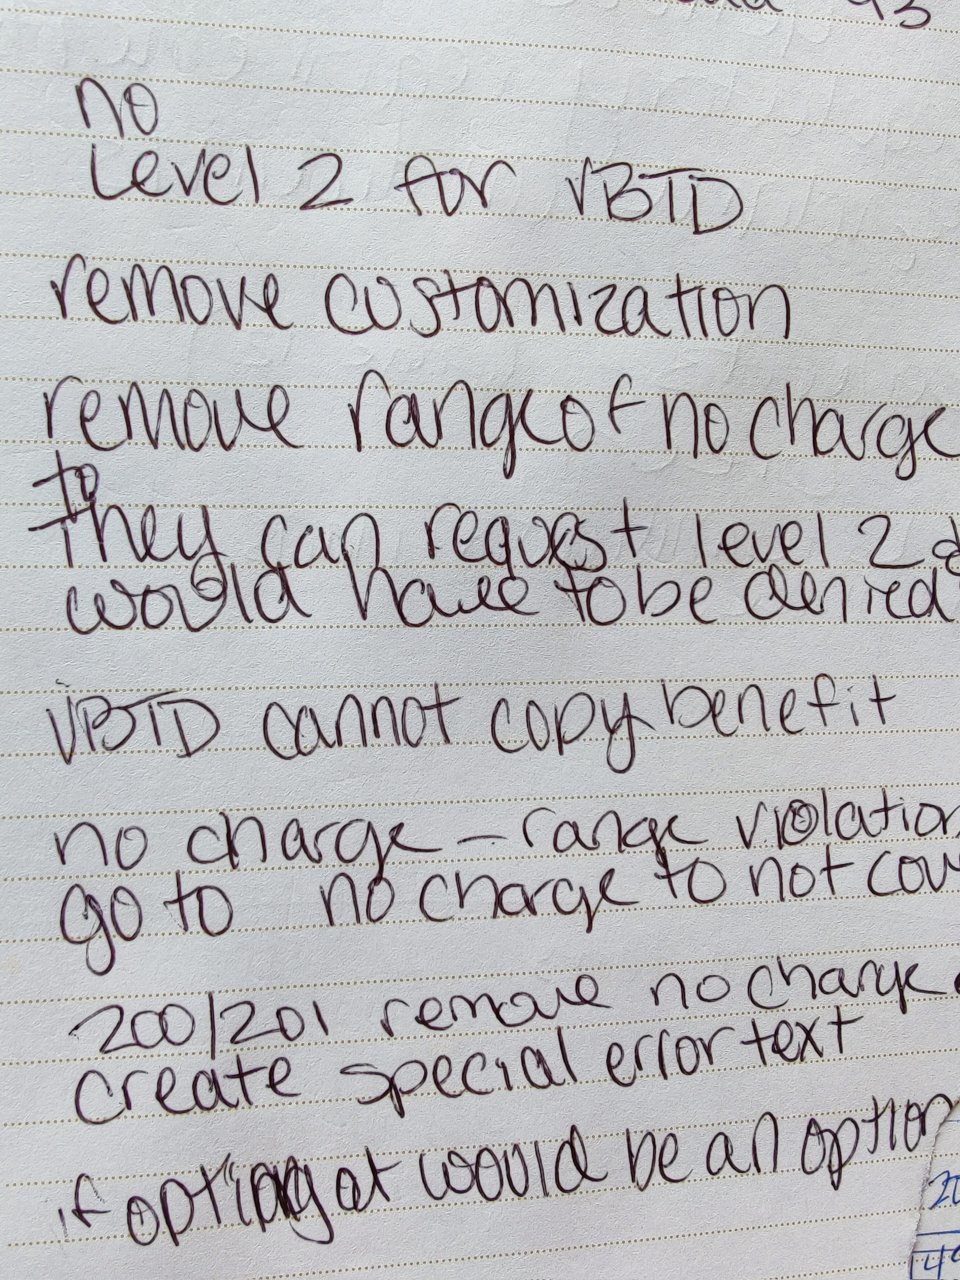 93
no
Level 2 for VBTD
remove customization
remove range of no charge
to
They can request level 2 &
would have to be denied
VBTD cannot copy benefit
no charge - range violation
go to no charge to not cov
200/201 remove no charge
create special error text
if opting at would be an option
20